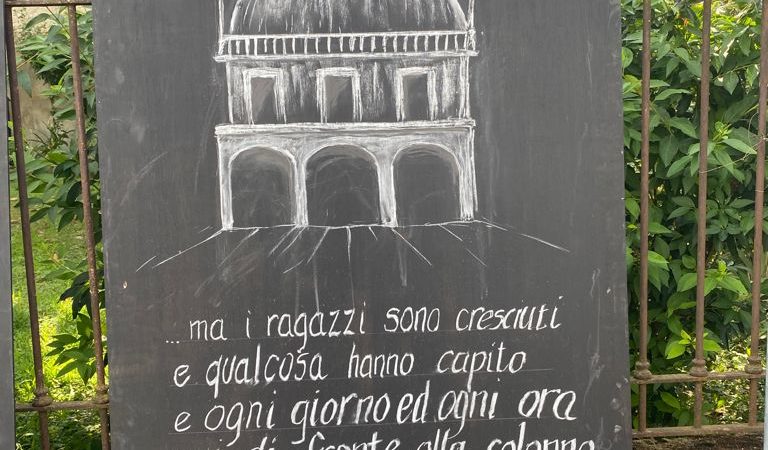 ... ma i ragazzi sono cresciuti
e qualcosa hanno capito
e ogni giorno ed ogni ora
di fronte alla colonna